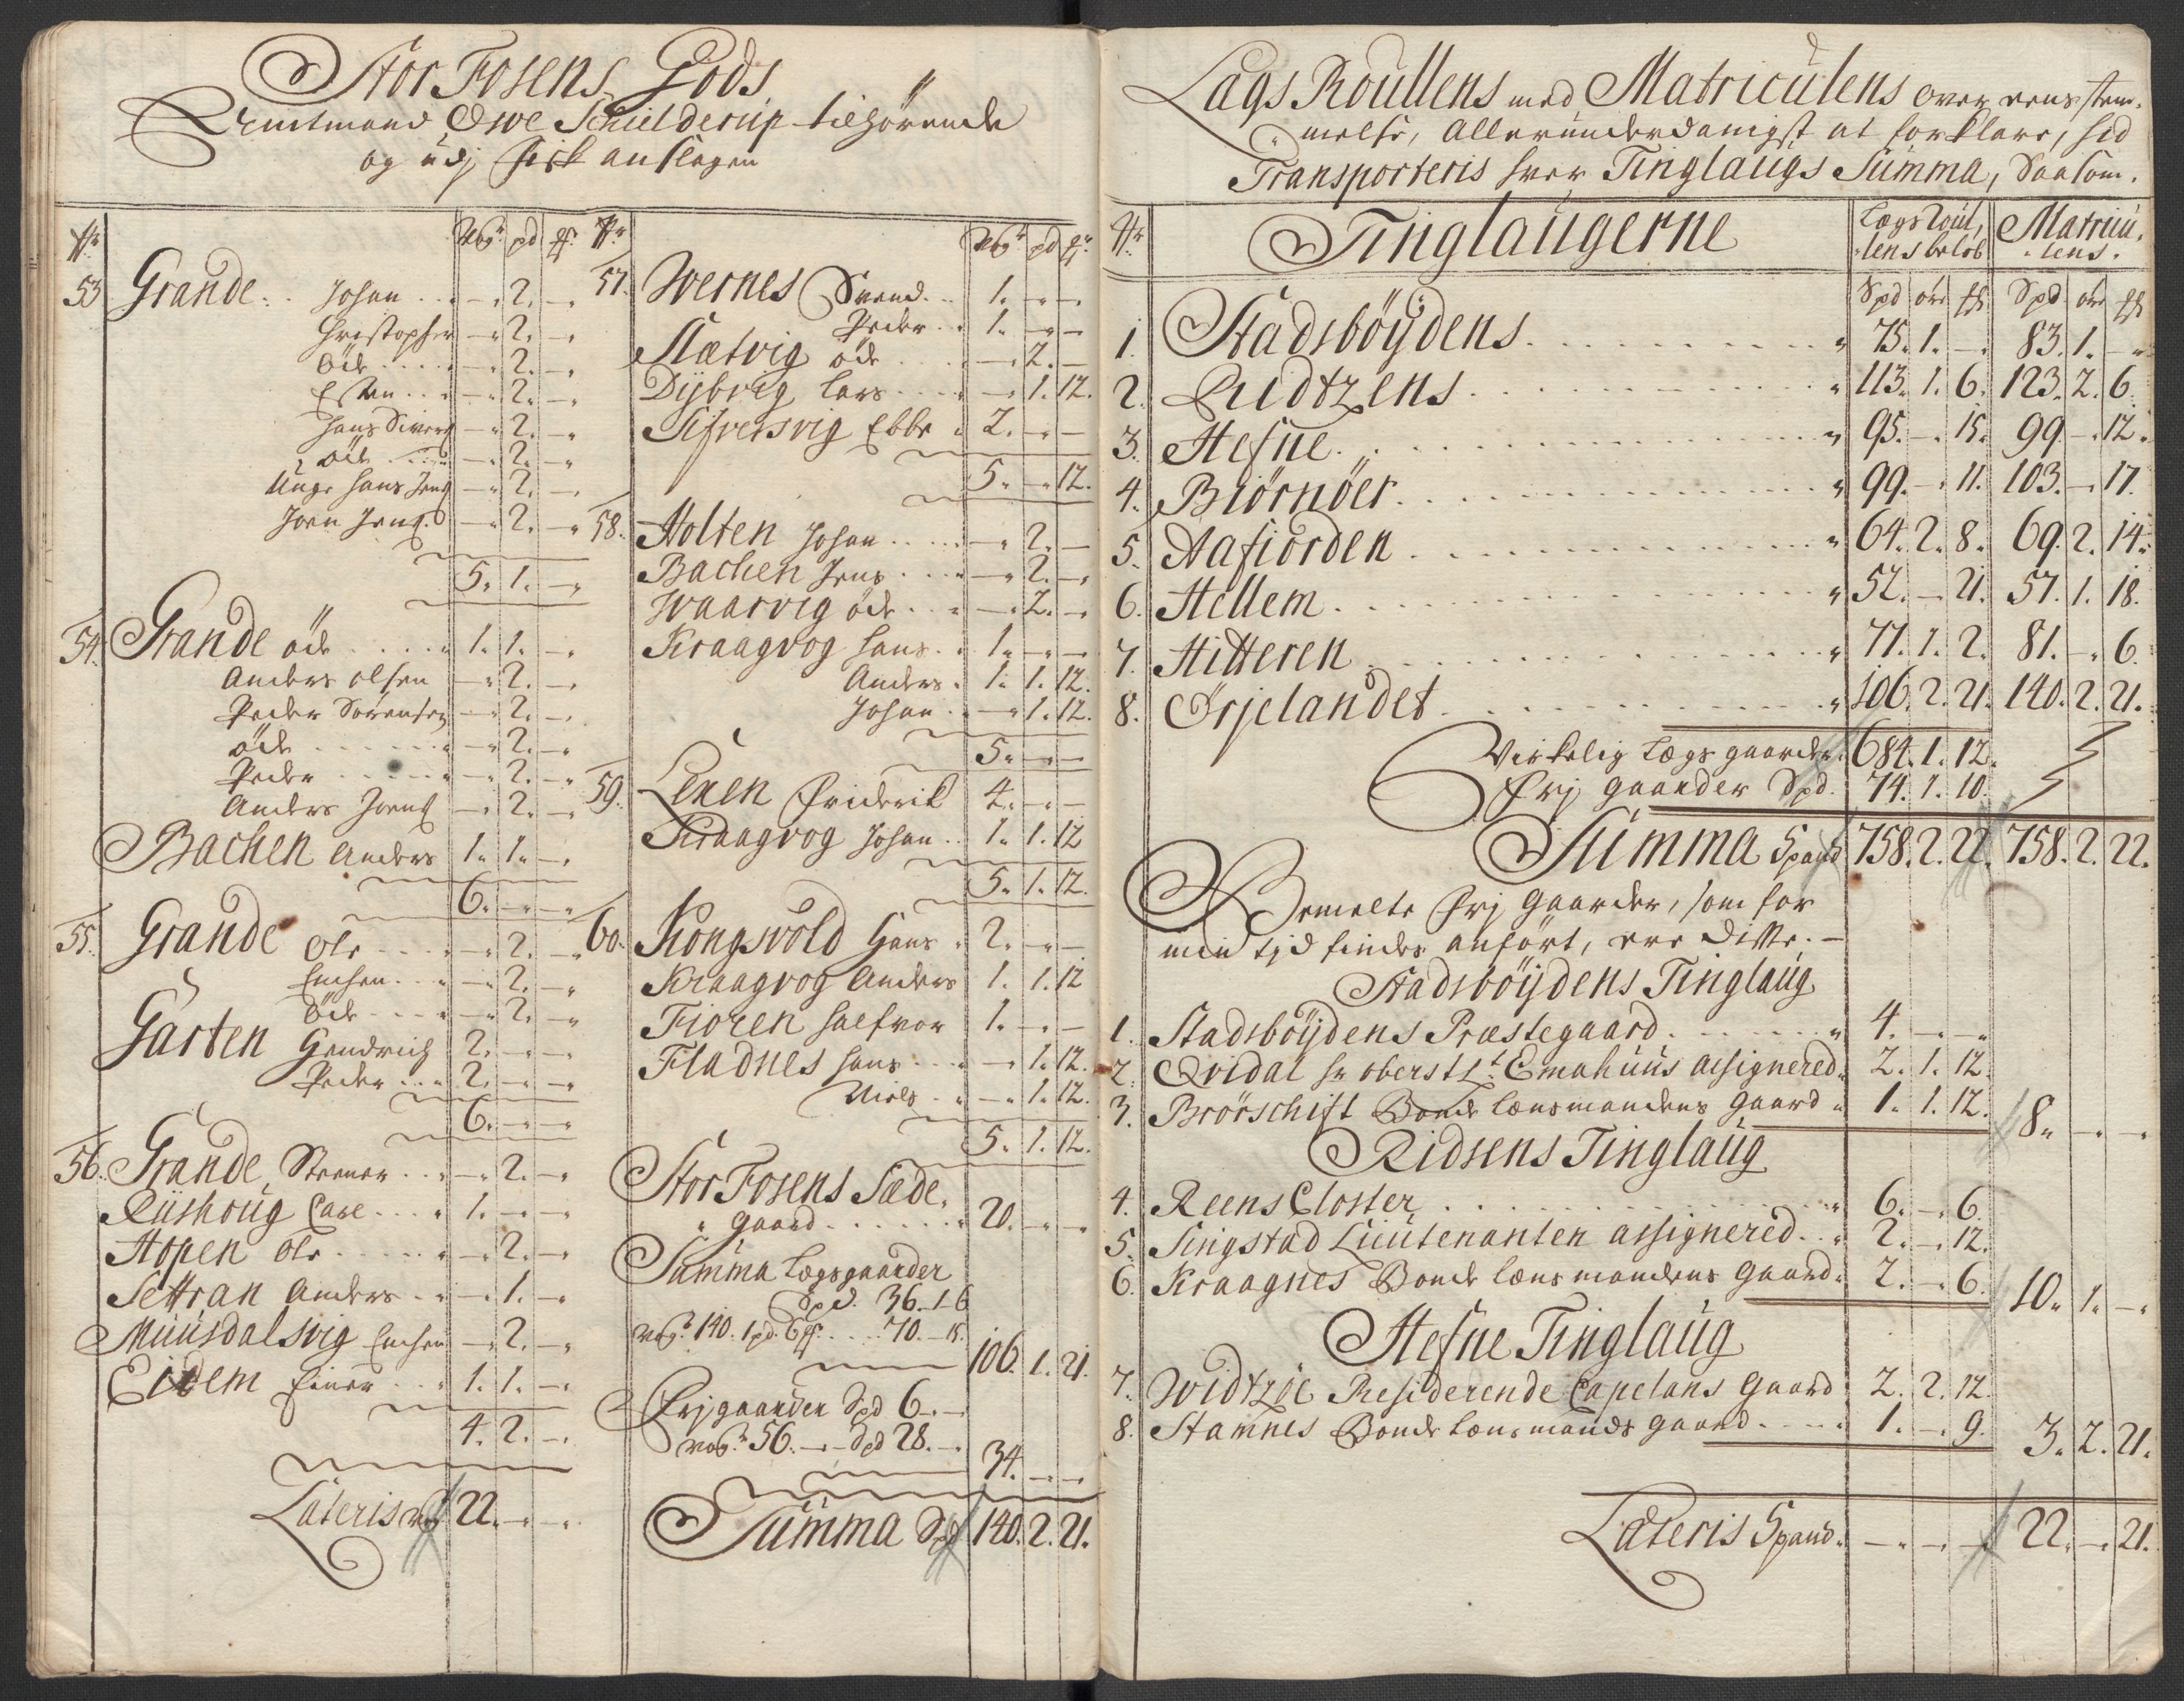 Stor Fosens Gods
Amtmand Owe Schielderup tilhörende
og udj fisk anslagen
No Wog pd
53 Grande Johan - 2. -
Christopher - 2. -
öde - 2. -
Esten - 2. -
Hans Sivers - 2. -
öde - 2. -
Unge Hans Jens - 2. -
Joen Jens. - 2. -
5. 1. -
54. Grande öde 1. 1. -
Anders Olsen - 2. -
Peder Sörensen - 2. -
öde - 2. -
Peder - 2. -
Anders Joens - 2. -
Bachen Anders 1. 1. -
6. - -
55. Grande Ole - 2. -
- 2. -
öde - 2. -
Garten Hendrich 2. - -
Peder 2. - -
6. - -
56. Grande Steener - 2. -
Rüshoug Carl 1. - -
Hopen Ole - 2. -
Settran Anders - 1. -
Muusdalsvig - 2. -
Eidem Einer 1. 1. -
4. 2. -
Lateris Wog 22. - -
No Wog pd
57. Wernes Svend 1. - -
Peder 1. - -
Slætvig öde - 2. -
Dybvig Lars - 1. 12.
Sifversvig Ebbe 2. - -
5. - 12.
58. Holten Johan - 2. -
Bachen Jens - 2. -
Waarvig öde - 2. -
Kraagvog Hans 1. - -
Anders 1. 1. 12.
Johan - 1. 12.
5. - -
59. Lexen Friderik 4. - -
Kraagvog Johan 1. 1. 12
5. 1. 12.
60. Kongsvold Hans 2. - -
Kraagvog Anders 1. 1. 12
Fioren Halfvor 1. - -
Fladnes Hans - 1. 12.
Niels - 1. 12.
5. 1. 12.
Stor Fosens Sæde
Gaard 20. - -
Summa Lægsgaarder
Spd. 36. 1. 6
Wog 140. 1 pd. 6 70. - 15.
106. 1. 21.
Frj gaarder Spd 6. -
Wog 56. - Spd 28. -
34. - -
Summa Spd 140. 2. 21.
Lægs Roullens med Matriculens over eens stem-
melse, allerunderdanigst at forklare, hid
Transporteris hver Tinglaugs Summa, Saasom.
No Tinglaugerne Lægs Roul- Matricu-
lens belöb lens.
Spd ör Spd ör
1. Stadsböydens 75. 1. - 83. 1. -
2. Ridtzens 113. 1. 6. 123. 2. 6
3. Hefne 95. - 15. 99. - 12.
4. Biörnöer 99. - 11. 103. - 17.
5. Aafiorden 64. 2. 8. 69. 2. 14.
6. Hellem 52. - 21. 57. 1. 18.
7. Hitteren 77. 1. 2. 81. - 6.
8. Ørjelandet 106. 2. 21. 140. 2. 21.
Virkelig Lægs gaarder 684. 1. 12.
Frj gaarder Spd. 74. 1. 10.
Summa Spand 758. 2. 22. 758. 2. 22.
Bemelte Frj Gaarder, som for
min tjd findes anfört, ere disse. -
Stadsböydens Tinglaug
1. Stadsböydens Præstegaard 4. - -
2. Qvidal hr oberst Lt. Emahuus assignered 2. 1. 12.
3. Brörschift Bonde Lænsmandens Gaard 1. 1. 12. 8. - -
Ridsens Tinglaug
4. Reens Closter 6. - 6.
5. Singstad Lieutenanten assignered 2. - 12.
6. Kraagnes Bonde Lænsmandens Gaard 2. - 6. 10. 1. -
Hefne Tinglaug
7. Widtzöe Residerende Capelans Gaard 2. 2. 12.
8. Stamnes Bonde Lænsmands Gaard 1. - 9. 3. 2. 21.
Lateris Spand - - - 22. - 21.